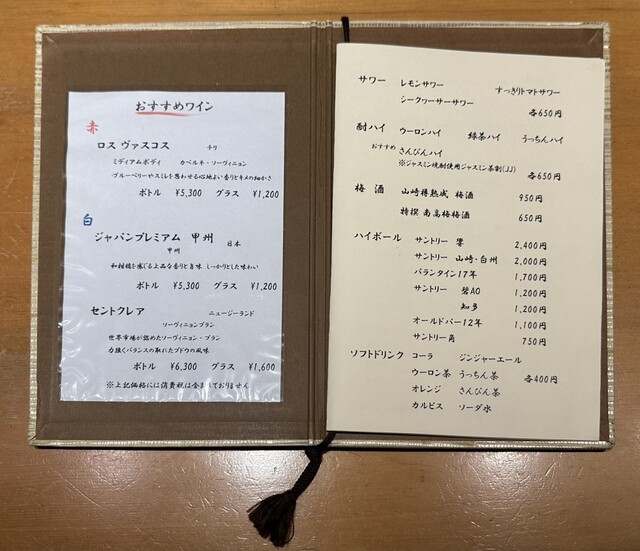 おすすめワイン
赤
ロス ヴァスコス チリ
ミディアムボディ カベルネ・ソーヴィニョン
ブルーベリーやスミレを思わせる心地よい香りとキメの細かさ
ボトル ¥5,300 グラス ¥1,200
白
ジャパンプレミアム 甲州 日本
甲州
和柑橘を感じる上品な香りと旨味 しっかりとした味わい
ボトル ¥5,300 グラス ¥1,200
セントクレア ニュージーランド
ソーヴィニョンブラン
世界市場が認めたソーヴィニョン・ブラン
力強くバランスの取れたブドウの風味
ボトル ¥6,300 グラス ¥1,600
※上記価格には消費税は含まれておりません
サワー レモンサワー すっきりトマトサワー
シークヮーサーサワー
各650円
酎ハイ ウーロンハイ 緑茶ハイ うっちんハイ
おすすめ さんぴんハイ
※ジャスミン焼酎使用ジャスミン茶割(JJ)
各650円
梅酒 山崎樽熟成 梅酒 950円
特撰 南高梅梅酒 650円
ハイボール サントリー 響 2,400円
サントリー 山崎・白州 2,000円
バランタイン17年 1,700円
サントリー 碧AO 1,200円
知多 1,200円
オールドパー12年 1,100円
サントリー角 750円
ソフトドリンク コーラ ジンジャーエール
ウーロン茶 うっちん茶 各400円
オレンジ さんぴん茶
カルピス ソーダ水